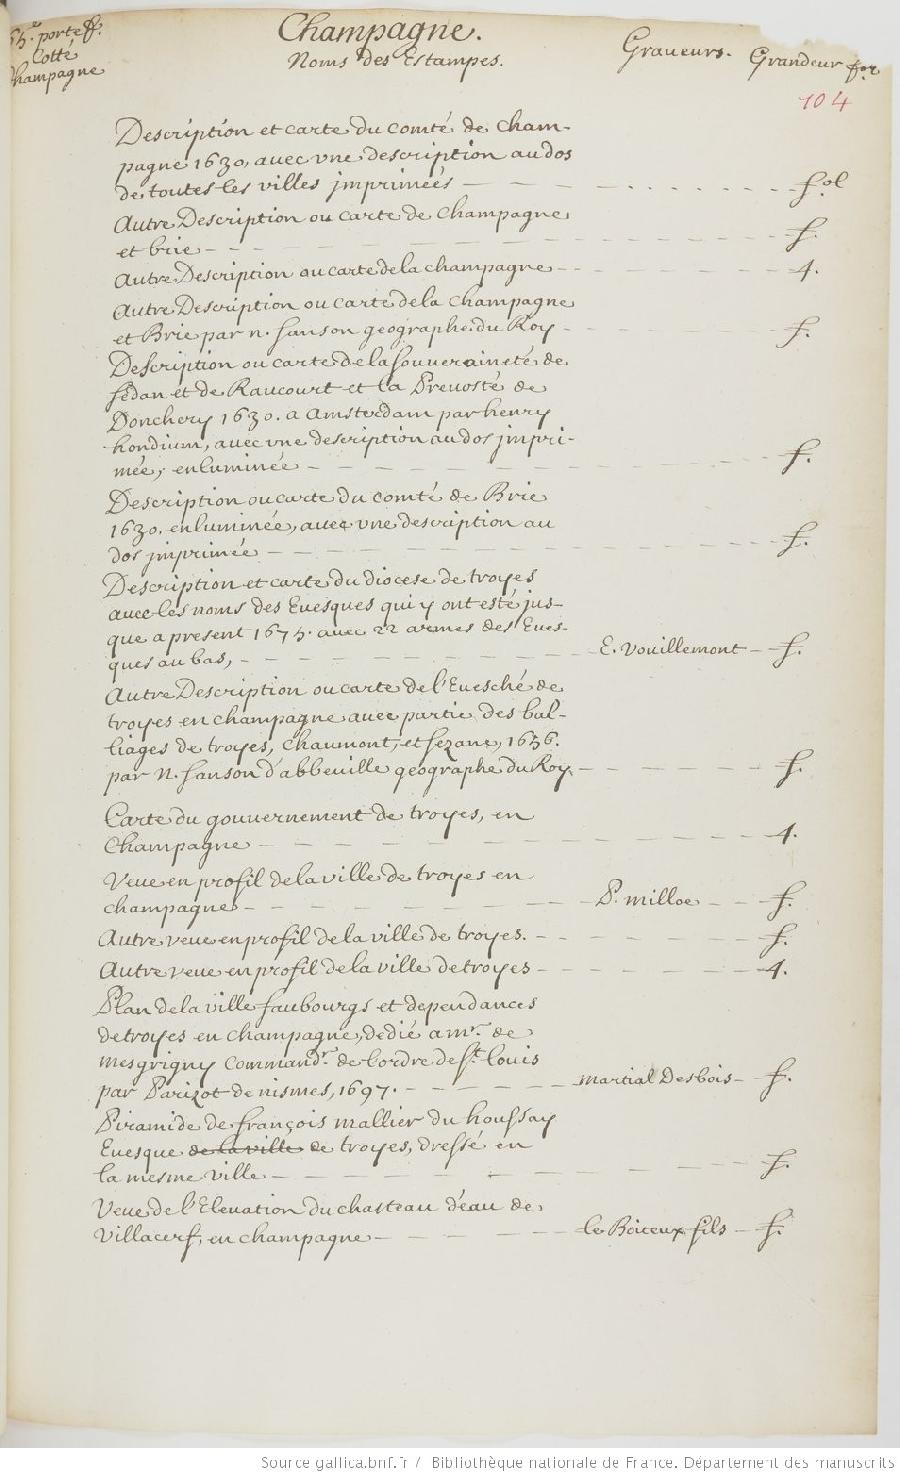 Champagne.
porteff.
Cotté
Champagne
Noms des Estampes.
Graveurs.
Grandeur
104
Description et carte du comté de Cham-
pagne 1630, avec vne description au dos
de toutes les villes jmprimées - fol
Autre Description ou carte de Champagne
et brie - f.
Autre Description ou carte de la champagne - 4.
Autre Description ou carte de la Champagne
et Brie par n. sanson geographe du Roy - f.
Description ou carte de la souueraineté de
sedan et de Raucourt et la Preuosté de
Donchery 1630. a Amsterdam par henry
hondium, avec vne description au dos jmpri-
mée, enluminée - f.
Description ou carte du comté de Brie
1630. enluminée, avec vne description au
dos jmprimée - f.
Description et carte du diocese de troyes
avec les noms des Euesques qui y ont esté jus-
que a present 1675. avec 22 armes des Eues-
ques au bas, - E. Vouillemont - f.
Autre Description ou carte de l'Euesché de
troyes en champagne avec partie des bal-
liages de troyes, Chaumont, et sezane, 1656.
par N. sanson d'abbeuille geographe du Roy - f.
Carte du gouuernement de troyes, en
Champagne - 4.
Veue en profil de la ville de troyes en
champagne - P. milloe - f.
Autre veue en profil de la ville de troyes. - f.
Autre veue en profil de la ville de troyes - 4.
Plan de la ville faubourgs et dependances
de troyes en champagne, dedié a mr. de
mesgrigny commandr. de l'ordre de st. louis
par Parizot de nismes, 1697. - martial Desbois - f.
Piramide de françois mallier du houssay
Euesque de la ville de troyes, dressé en
la mesme ville - f.
Veue de l'Eleuation du chasteau d'eau de
Villacerf, en champagne - le Boiceux fils - f.
Source gallica.bnf.fr / Bibliothèque nationale de France. Département des manuscrits